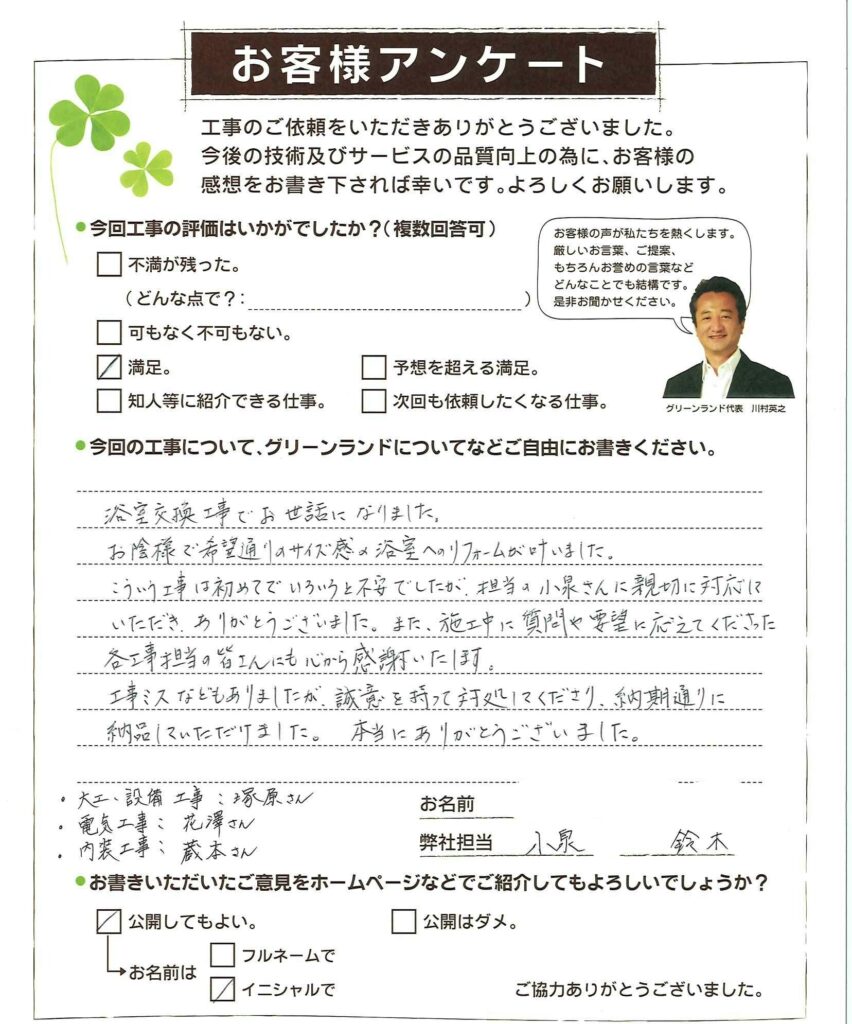 お客様アンケート
工事のご依頼をいただきありがとうございました。
今後の技術及びサービスの品質向上の為に、お客様の
感想をお書き下されば幸いです。よろしくお願いします。
今回工事の評価はいかがでしたか?(複数回答可)
お客様の声が私たちを熱くします。
厳しいお言葉、ご提案、
もちろんお誉めの言葉など
どんなことでも結構です。
是非お聞かせください。
不満が残った。
(どんな点で?: )
可もなく不可もない。
満足。 予想を超える満足。
知人等に紹介できる仕事。 次回も依頼したくなる仕事。
グリーンランド代表 川村英之
今回の工事について、グリーンランドについてなどご自由にお書きください。
浴室交換工事でお世話になりました。
お陰様で希望通りのサイズ感の浴室へのリフォームが叶いました。
こういう工事は初めてでいろいろと不安でしたが、担当の小泉さんに親切に対応に
いただき、ありがとうございました。また、施工中に質問や要望に応えてくださった
各工事担当の皆さんにも心から感謝いたします。
工事ミスなどもありましたが、誠意を持って対処してくださり、納期通りに
納品していただけました。 本当にありがとうございました。
・大工、設備工事:塚原さん
・電気工事:花澤さん
・内装工事:蔵本さん
お名前
弊社担当 小泉 鈴木
お書きいただいたご意見をホームページなどでご紹介してもよろしいでしょうか?
公開してもよい。 公開はダメ。
お名前は
フルネームで
イニシャルで
ご協力ありがとうございました。